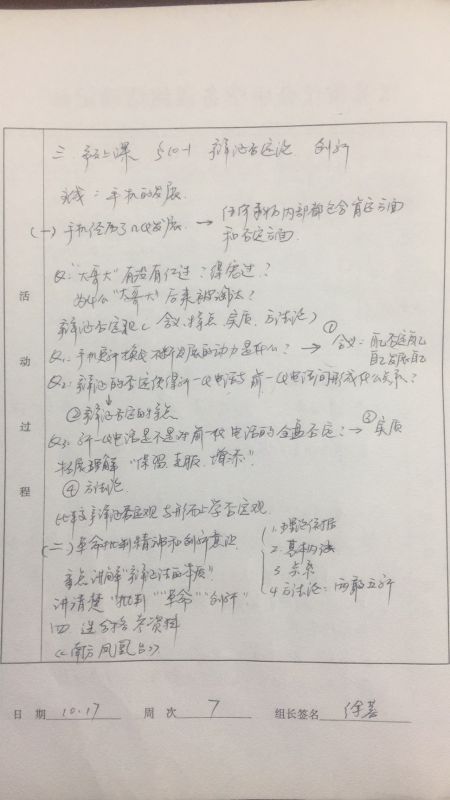 三. 新上课 §10-1 辩证否定观 创新
主线：手机的发展.
(一) 手机经历了几代发展. → 任何事物内部都包含肯定方面
和否定方面.
Q: "大哥大"有没有红过？得宠过？
为什么"大哥大"后来被淘汰？
辩证否定观（含义、特点、实质、方法论）
Q1: 手机更新换代不断发展的动力是什么？ → ①含义：自己否定自己
自己发展自己
Q2: 辩证的否定使得新一代电话与前一代电话间形成什么关系？
②辩证否定的特点
Q3: 新一代电话是不是对前一代电话的全盘否定？ → ③实质
拓展理解 "保留、克服、增添".
④ 方法论
比较辩证否定观与形而上学否定观
(二) 革命批判精神和创新意识
1. 理论依据
2. 基本内涵
3. 关系
4. 方法论：
重点讲解"辩证法的本质"
讲清楚"批判""革命""创新"
四.
《南方凤凰台》
活动过程
日 期 10.17 周 次 7 组长签名